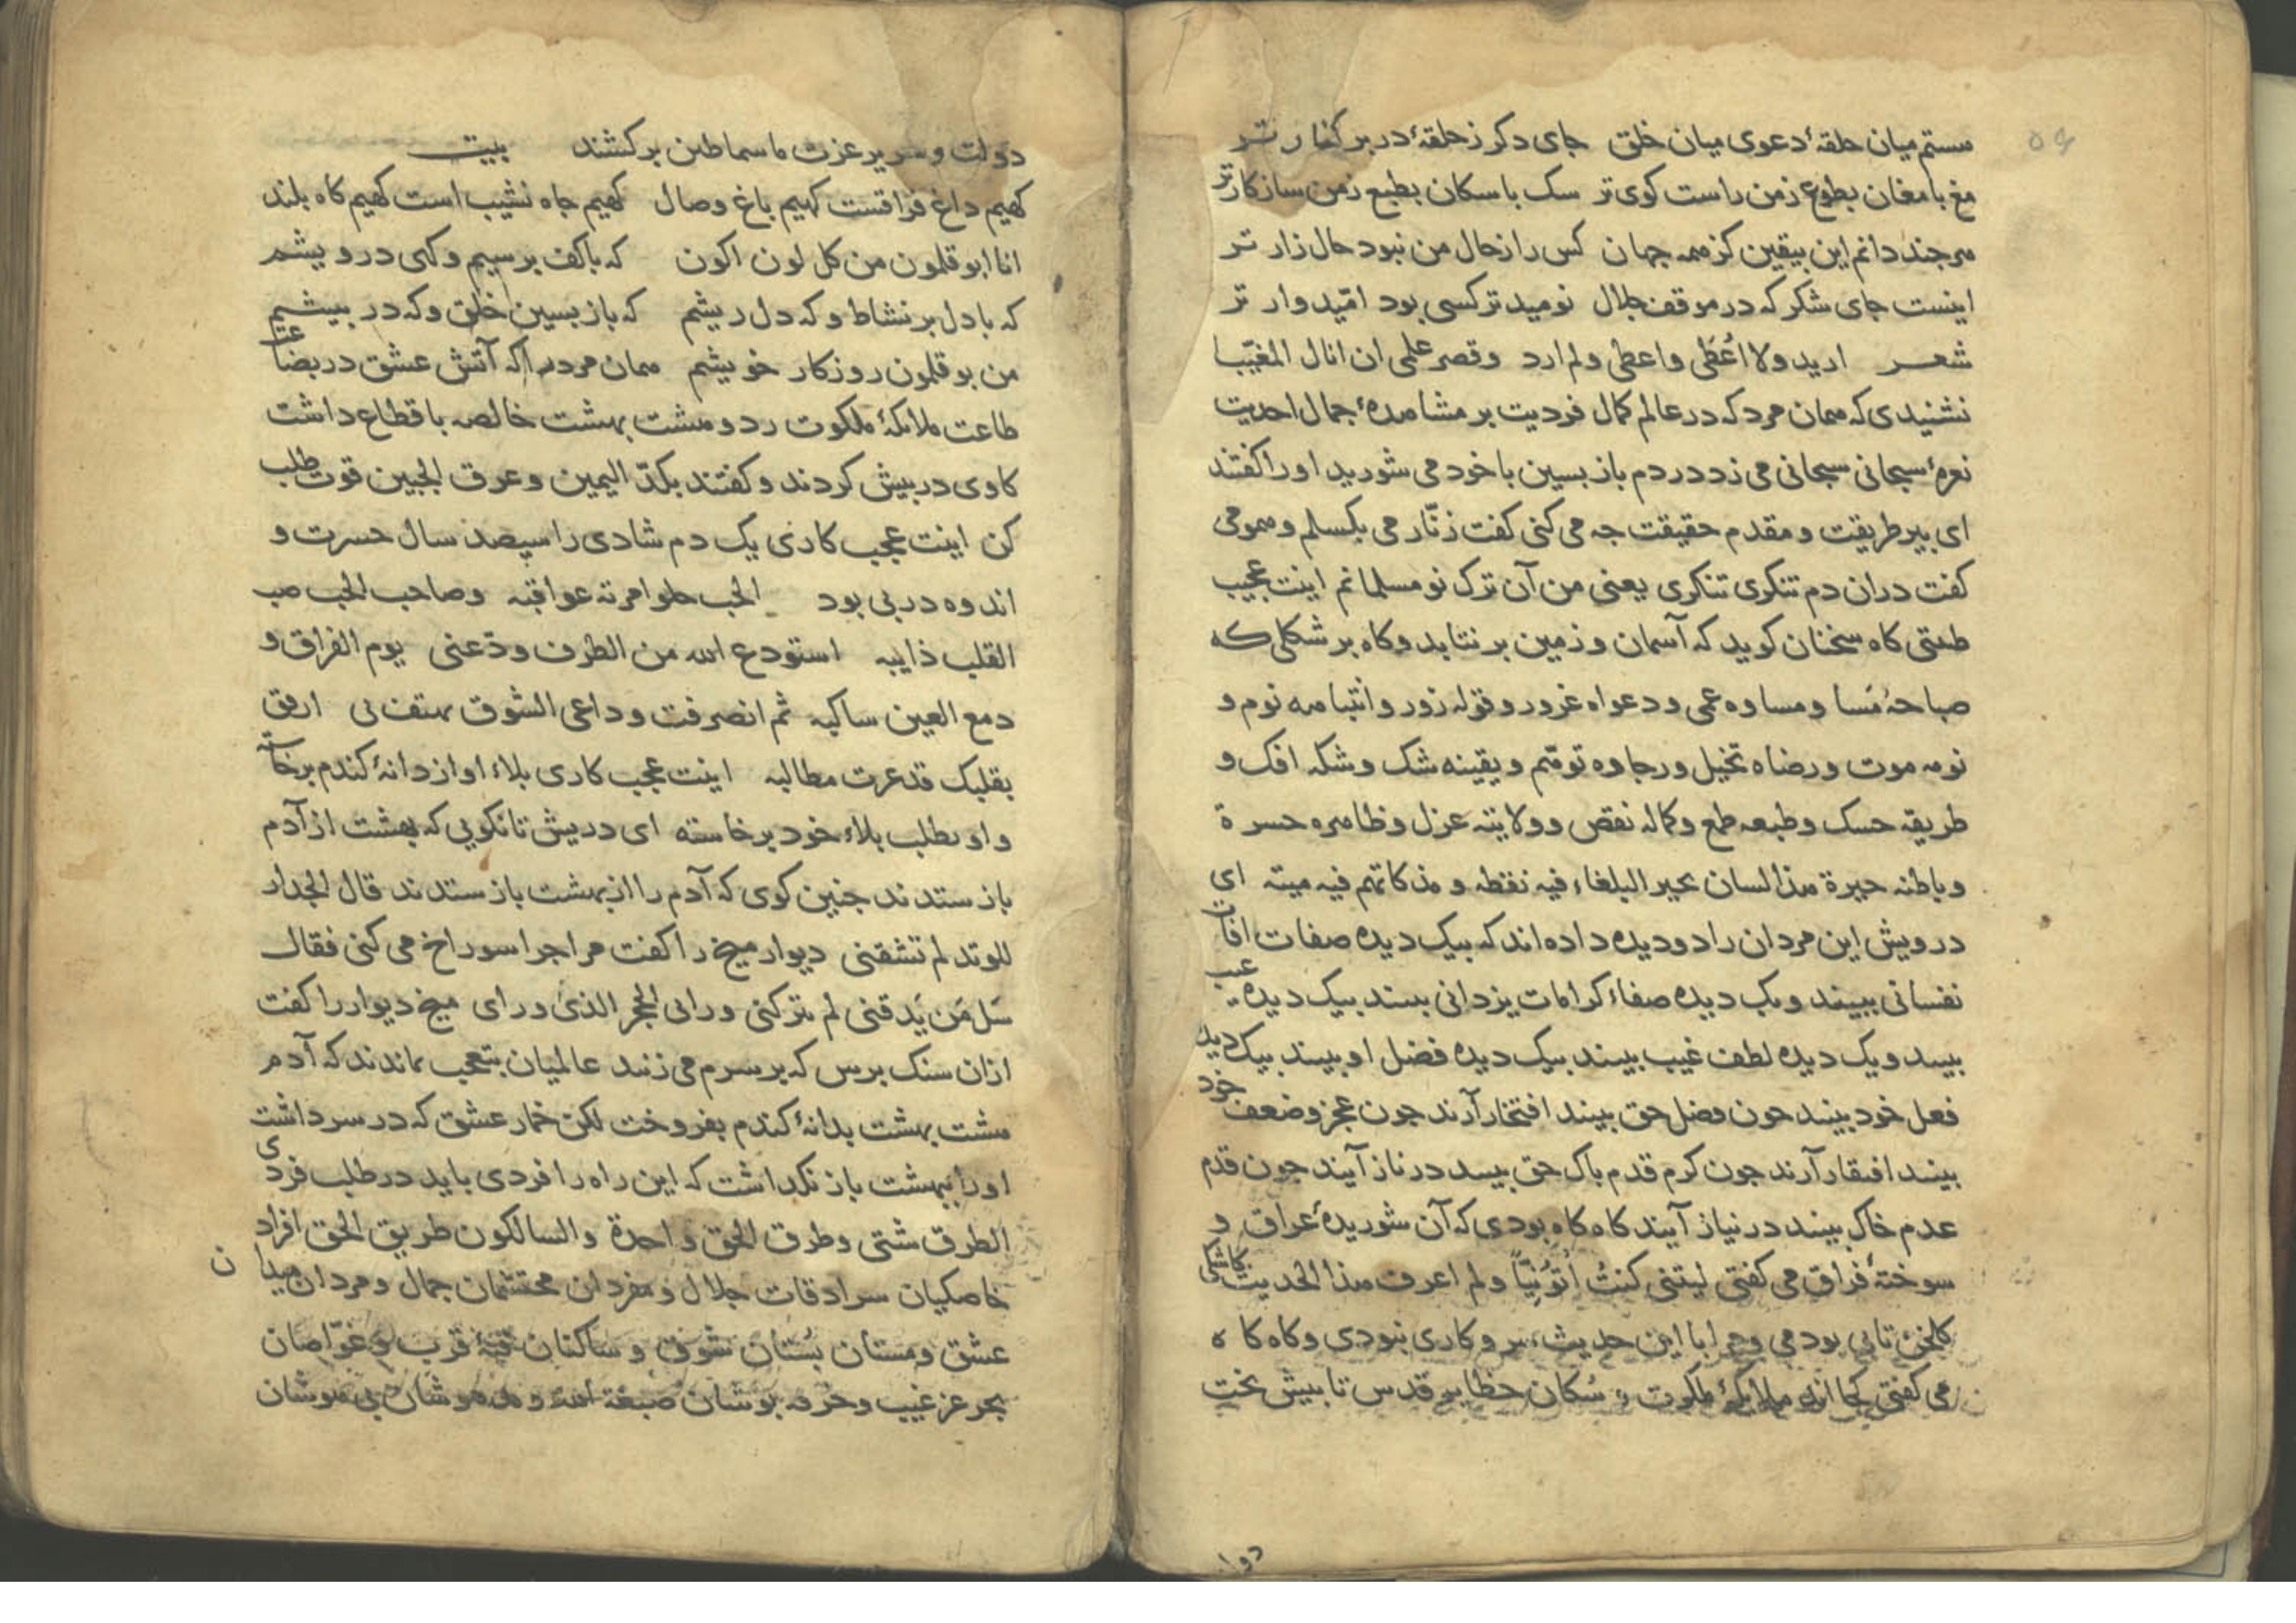 مستم میان حلقهٔ دعوی میان خلق جای دکر زحلقهٔ در بر کنار تر
مغ با مغان بطوع زمن راست کوی تر سک با سکان بطبع زمن سازکارتر
هرجند دانم این بیقین کز همه جهان کس را زحال من نبود حال زار تر
اینست جای شکر که در موقف جلال نومیدتر کسی بود امّیدوار تر
شعر ارید ولا اُعطَی واعطی ولم ارد وقصر علمی ان انال المغیّبا
نشنیدی که همان مرد که در عالم کمال فردیت بر مشاهدهٔ جمال احدیت
نعرهٔ سبحانی سبحانی می زد در دم باز بسین با خود می شورید او را کفتند
ای بیر طریقت و مقدم حقیقت جه می کنی کفت زنّار می بکسلم و همو می
کفت دران دم تنکری تنکری یعنی من آن ترک نو مسلمانم اینت عجیب
کاه سخنان کوید که آسمان و زمین بر نتابد و کاه بر شکلی که
صباحهُ مَسا ومساوه عمی ودعواه غرور وقوله زور وانتباهه نوم و
نومه موت ورضاه تخیل ورجاوه توهّم ویقینه شک وشکه افک و
طریقه حسک وطبعه طمع وکماله نقص وولایته عزل وظاهره حسرة
وباطنه حیرة هذا لسان یحیر البلغاء فیه نقطه و میته ای
درویش این مردان را دو دیده داده اند که بیک دیده صفات افات
نفسانی ببینند ویک دیده صفاء کرامات یزدانی بینند بیک دیده عیب
بینند ویک دیده لطف غیب بینند بیک دیده فضل او بینند بیک دیده
فعل خود بینند جون فضل حق بینند افتخار آرند جون عجز وضعف خود
بینند افتقار آرند جون کرم قدم باک حق بینند در ناز آیند جون قدم
عدم خاک بینند در نیاز آیند کاه کاه بودی که آن شوریدهٔ عراق و
سوختهٔ فراق می کفتی لیتنی کنتُ اتّونیّاً ولم اعرف هذا الحدیث کاشکی
کلخن تابی بودمی ومرا با این حدیث سر و کاری نبودی وکاه کاه
می کفتی کجا اند ملائکهٔ ملکوت و سُکان حظایر قدس تا بیش تخت
دوا
دولت وسریر عزت ما سماطین برکشند بیت
کهیم داغ فراقست کهیم باغ وصال کهیم جاه نشیب است کهیم کاه بلند
انا ابو قلمون من کل لون اکون که باکف بر سیم وکهی درویشم
که با دل بر نشاط وکه دل ریشم که باز بسین خلق وکه در بیشم
من بو قلمون روزکار خویشم همان مرد را که آتش عشق در بضاعت
طاعت ملائکهٔ ملکوت زد وهشت بهشت خالصه باقطاع داشت
کاوی در بیش کردند و کفتند بکدّ الیمین وعرق الجبین قوت طلب
کن اینت عجیب کاری یک دم شادی را سیصد سال حسرت و
اندوه در بی بود الحب حلو امرته عواقبه وصاحب الحب صب
القلب ذایبه استودع الله من الطرف ودّعنی یوم الفراق و
دمع العین ساکبه ثم انصرفت وداعی الشوق یهتف بی ارفق
بقلبک قد عزت مطالبه اینت عجیب کاری بلاء او از دانهٔ کندم برخاسته
واو بطلب بلاء خود برخاسته ای درویش تا نکویی که بهشت از آدم
باز ستدند جنین کوی که آدم را از بهشت باز ستدند قال الجدار
للوتد لم تشقنی دیوار میخ را کفت مرا جرا سوراخ می کنی فقال
سَل مَن یَدقنی لم یترکنی ورائی الحجر الذی ورای میخ دیوار را کفت
ازان سنک برس که بر سرم می زنند عالمیان بتعجب بماندند که آدم
هشت بهشت بدانهٔ کندم بفروخت لکن خمار عشق که در سر داشت
او را ببهشت باز نکداشت که این راه را فردی باید در طلب فردی
الطرق شتی وطرق الحق واحدة والسالکون طریق الحق افراد
خاصکیان سرادقات جلال و مفردان محتشمان جمال ومردان میدان
عشق ومستان بُستان شوق و ساکنان قبهٔ قرب وغوّاصان
بحر عز غیب وخرقه بوشان صبغة الله ومدهوشان بی هوشان